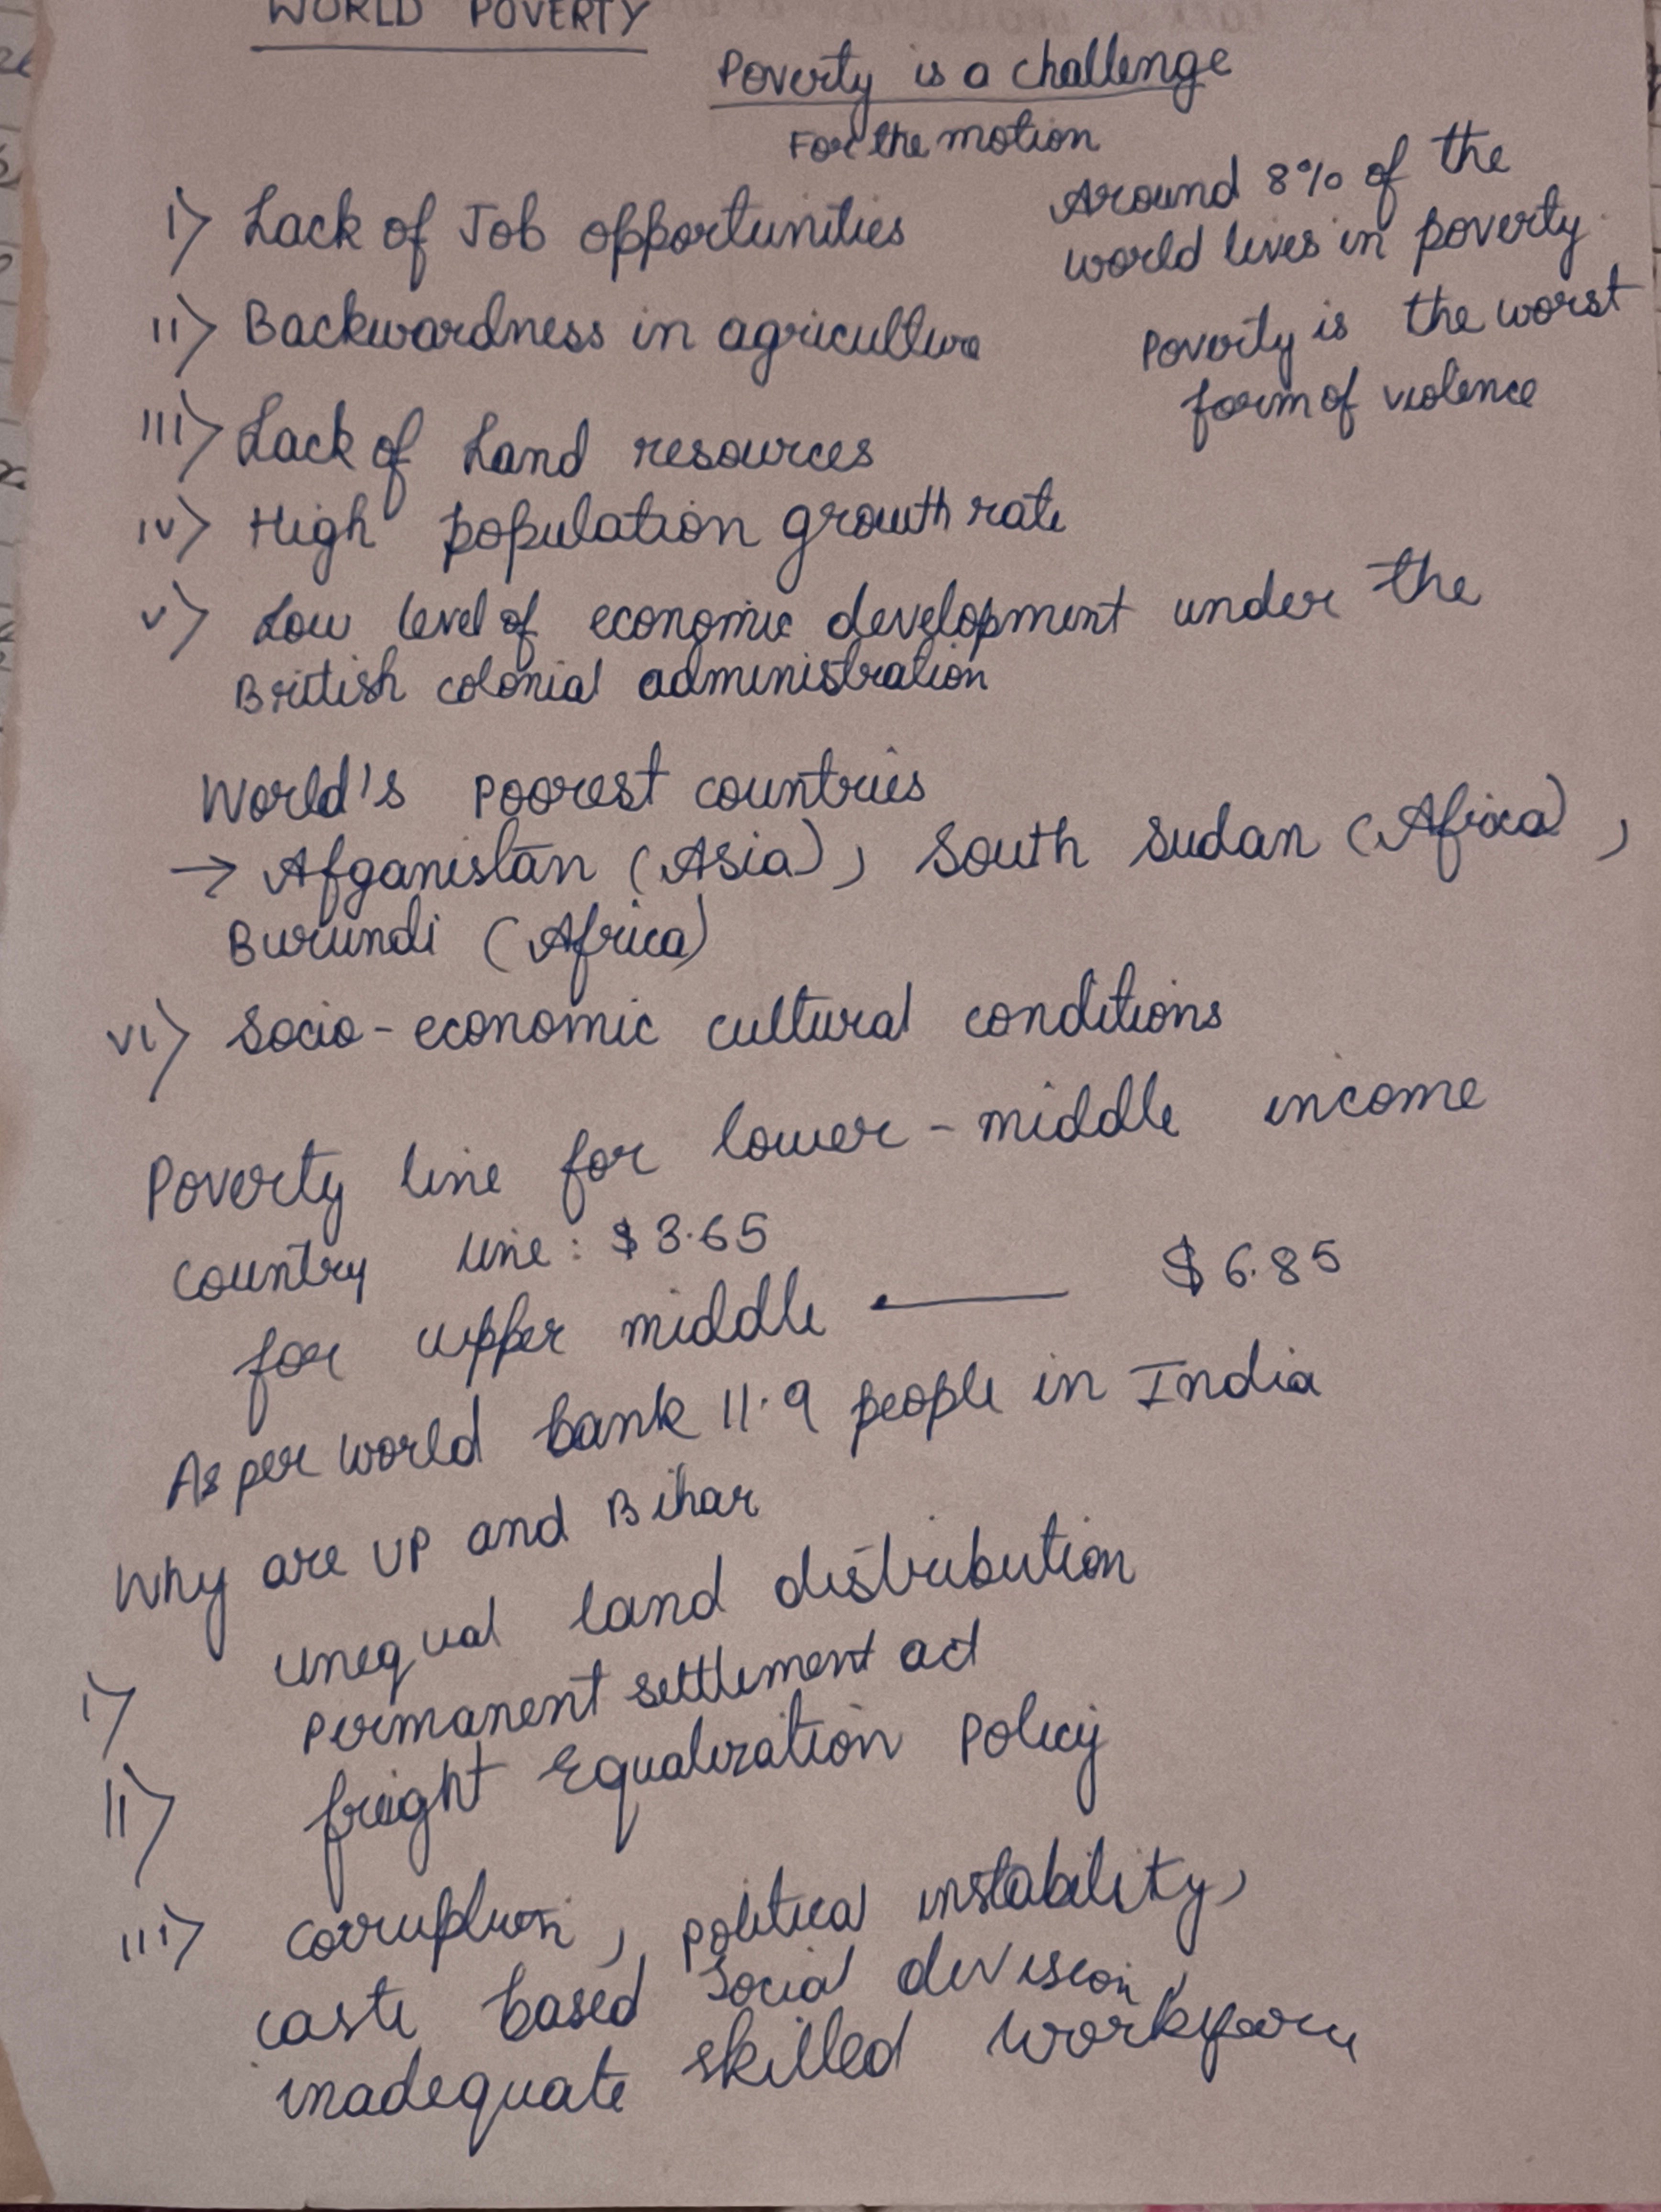 WORLD POVERTY
Poverty is a challenge
For the motion
Around 8% of the
world lives in poverty.
Poverty is the worst
form of violence
i) Lack of Job opportunities
ii) Backwardness in agriculture
iii) Lack of Land resources
iv) High population growth rate
v) Low level of economic development under the
British colonial administration
World's poorest countries
→ Afganistan (Asia), South Sudan (Africa),
Burundi (Africa)
vi) Socio-economic cultural conditions
Poverty line for lower-middle income
country line: $3.65
for upper middle — $6.85
As per world bank 11.9 people in India
Why are UP and Bihar
i) unequal land distribution
Permanent settlement act
ii) freight Equalization Policy
iii) corruption, political instability,
caste based social division,
inadequate skilled workforce